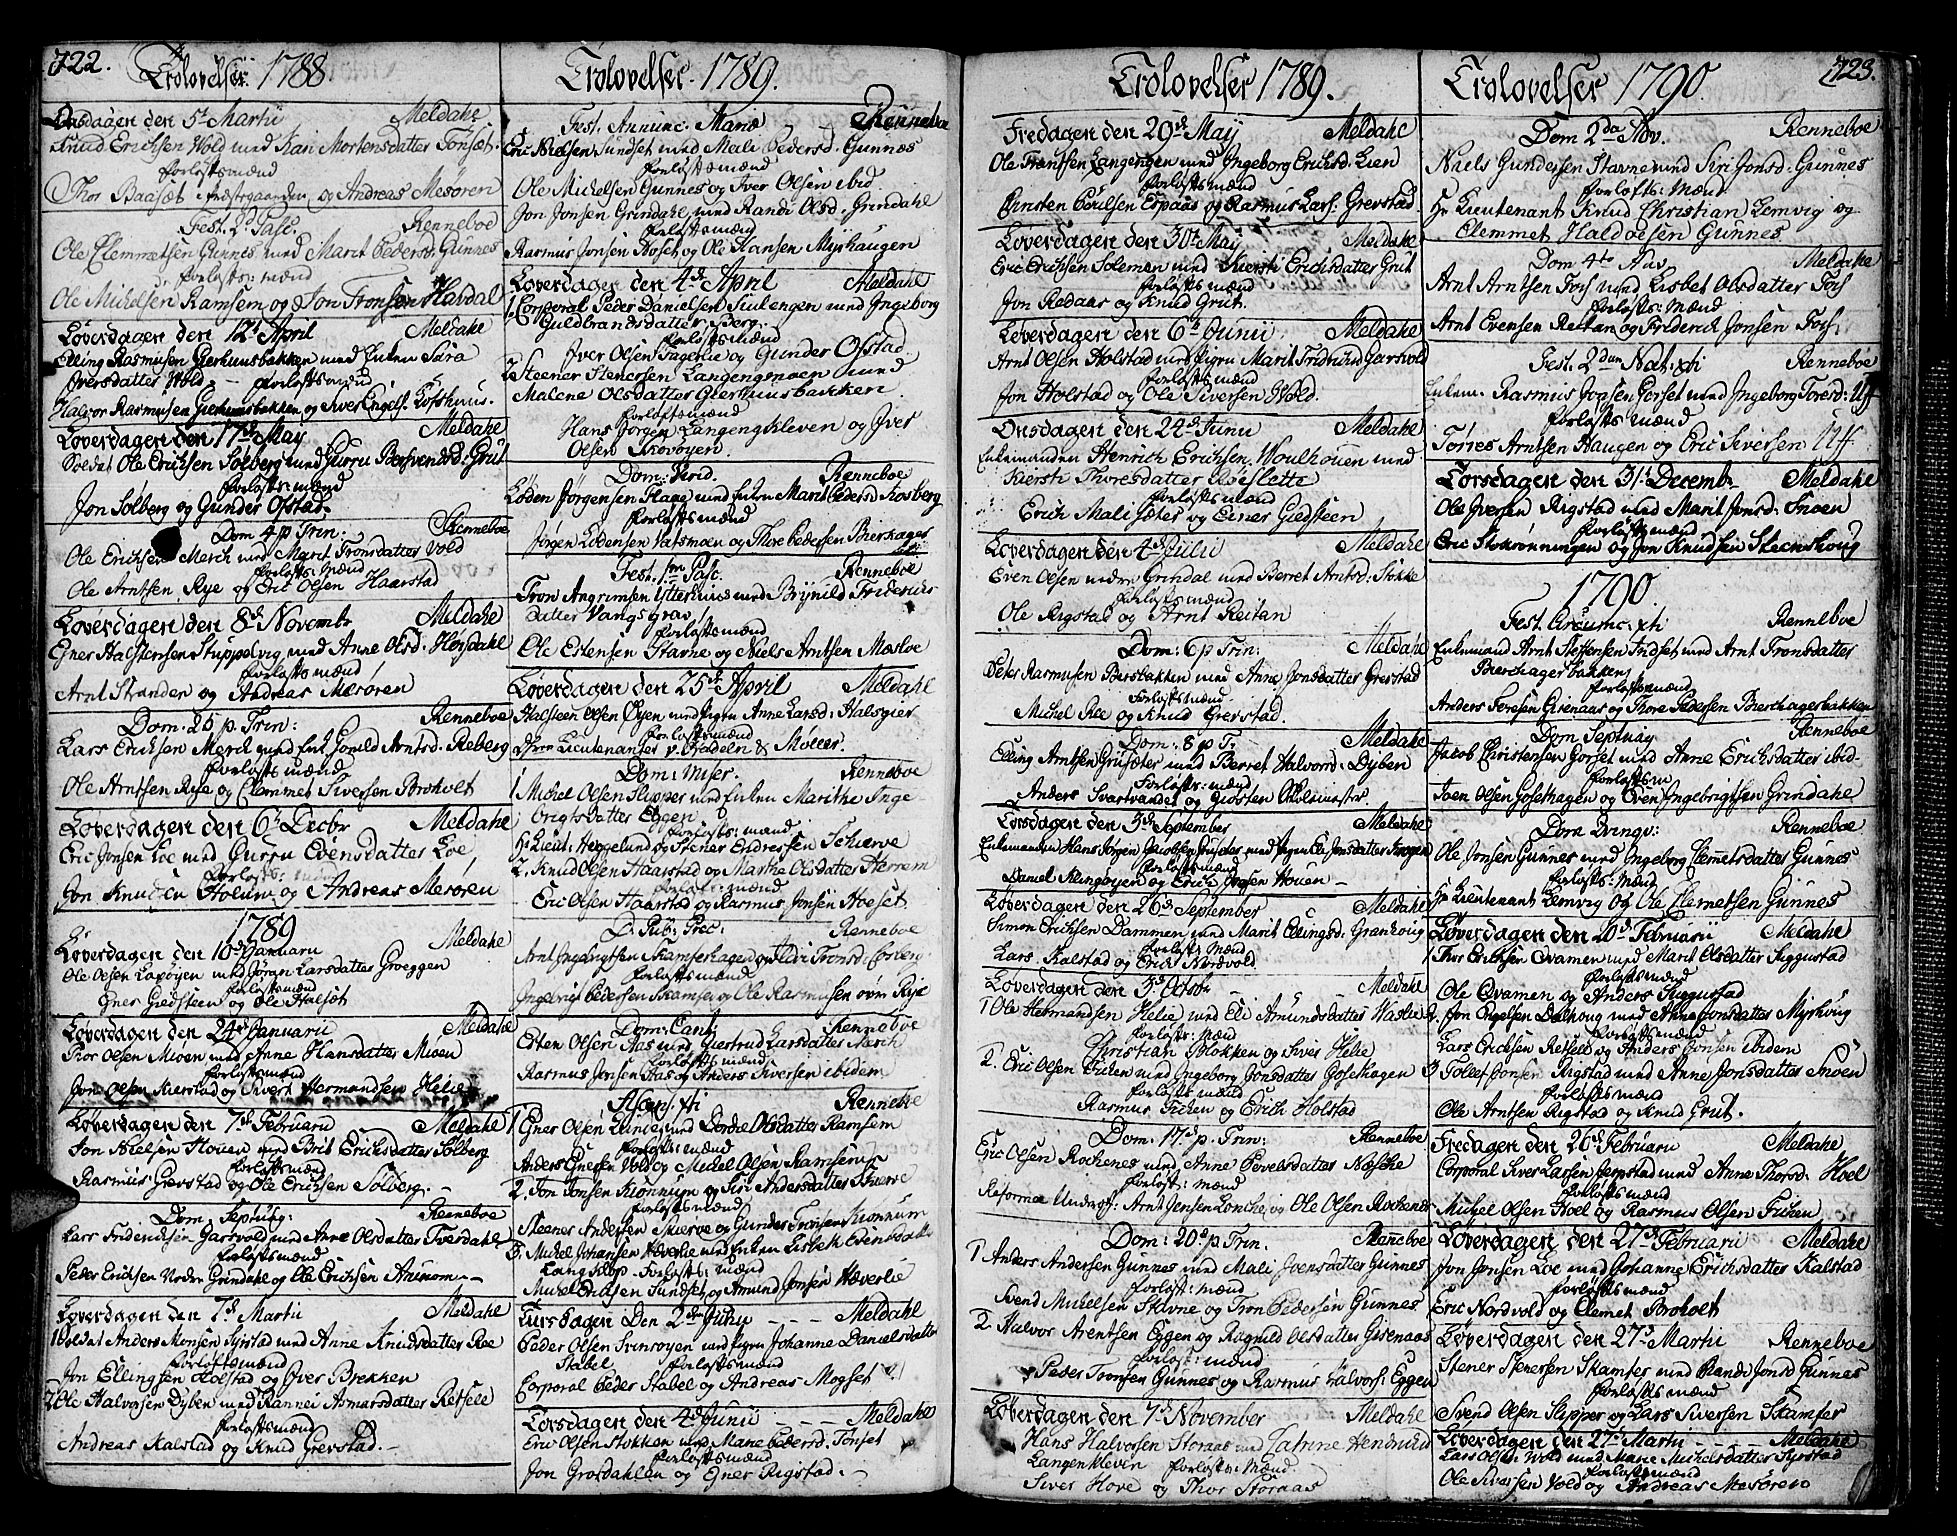 722.
Trolovelser 1788
Onsdagen den 5t Martii Meldahl
Knud Erichsen Wold med Kari Mortensdatter Fonset.
forloftsmænd
Thor Baasæt i Præstegaarden og Andreas Mesøren
Fest. 2. Pasc. Renneboe
Ole Clemmetsen Gunnes med Marit Pedersd. Gunnes
forlofts: mænd
Ole Michelsen Ramsem og Jon Tronsen Havdal
Løverdagen den 12t April Meldahl
Elling Rasmusen Gierhunsbakken med Enken Sara
Iversdatter Wold. forloftsmænd
Halvor Rasmusen Gierhunsbakken og Siver Engels. Lofshuus.
Løverdagen den 17de May Meldahl
Soldat Ole Erichsen Solberg med Gurru Bersvendsd. Grüt
forloftsmænd
Jon Solberg og Gunder Ofstad.
Dom 4 p Trin: Renneboe
Ole Erichsen Merch med Marit Tronsdatter Vold
forlofts: mænd
Ole Arntsen Rye og Eric Olsen Haarstad
Løverdagen den 8de Novembr Meldahl
Egner Halstensen Stuppelvig med Anne Olsd. Hovdahl
forloftsmænd
Arnt Stranden og Andreas Mesøren
Dom: 25 p. Trin: Renneboe
Lars Erichsen Merch med Enk. Gonild Arntsd. Reberg
forlofts mænd
Ole Arntsen Rye og Clemmet Siversen Brokolt
Løverdagen den 6t Decbr Meldahl
Eric Jonsen Loe med Gurru Evensdatter Loe
forlofts:
Jon Knudsen Holum og Andreas Mesøren
1789
Løverdagen den 10de Januarii Meldahl
Ole Olsen Lapøyen med Joran Larsdatter Groeggen
forloftsmænd
Egner Giedsteen og Ole Halset
Løverdagen den 24de Januarii Meldahl
Thor Olsen Moen med Anne Hansdatter Moen
forloftsmænd
Jon Olsen Kierstad og Sivert Hermandsen Helie
Løverdagen den 7de Februarii Meldahl
Jon Nielsen Houen med Brit Erichsdatter Solberg
forloftsmænd
Rasmus Grevstad og Ole Erichsen Solberg.
Dom: Septuag: Renneboe
Lars Friderichsen Garsvold med Anne Olsdatter Tverdahl
forloftsmænd
Peder Erichsen Nedre Grindahl og Ole Erichsen
Løverdagen den 7de Martii Meldahl
1 Soldat Anders Monsen Syrstad med Anne Knudsdatter Ree
forloftsmænd
Jon Ellingsen Holstad og Iver Brekken
2 Ole Halvorsen Dyben med Rannei Asmarsdatter Retsele
forloftsmænd
Andreas Kalstad og Knud Grevstad.
Trolovelser. 1789.
Fest. Annunc. Mariæ Renneboe
Eric Nielsen Sundset med Mali Pedersd. Gunnes
forloftsmænd
Ole Michelsen Gunnes og Iver Olsen ibid
Jon Jonsen Grindahl med Randi Olsd. Grindahl
forloftsmænd
Rasmus Jonsen Hoset og Ole Hansen Myrhaugen
Løverdagen den 4de April Meldahl
1. Corporal Peder Danielsen Sulengen med Ingeborg
Guldbrandsdatter Berg.
forloftsmænd
Iver Olsen Fagerlie og Gunder Ofstad
2. Steener Stenersen Langengsmoen med
Malene Olsdatter Gierhunsbakken
forloftsmænd
Hans Jørgen Langengkleven og Iver
Olsen Krovøyen
Dom: Virid. Renneboe
Loden Jørgensen Flage med Enken Marit Pedersd. Kosberg
forloftsmænd
Jørgen Lodensen Vatsmoen og Thore Pedersen Bierkager
Fest. Pasc. Renneboe
Tron Angrimsen Ytterhuus med Brynild Friderichs
datter Vangsgrav
forloftsmænd
Ole Estensen Stavne og Niels Arntsen Mæsloe
Løverdagen den 25de April Meldahl
Halsteen Olsen Øyen med Pigen Anne Larsd. Halsgier
forloftsmænd
Hrn Lieutenanter v. Rodeln & Møller.
Dom: Miser. Renneboe
1 Michel Olsen Slipper med Enken Marithe Inge
brigtsdatter Eggen
forlofts: mænd
Hr Lieut: Heggelund og Stener Endressen Schierve
2. Knud Olsen Haarstad og Marthe Olsdatter Herrem
forlofts: mænd
Eric Olsen Haarstad og Rasmus Jonsen Hoeset
D. Pub: Prec: Renneboe
Arnt Ingebrigtsen Skamferhagen og Elri Tronsd. Cosberg
forloftsmænd
Ingebrigt Pedersen Skamfer og Ole Rasmusen øvre Rye
Dom: Cant: Renneboe
Esten Olsen Aas med Giertrud Larsdatter Merch
forloftsmænd
Rasmus Jonsen Aas og Anders Siversen ibidem
Ascen. xti Renneboe
1. Egner Olsen Lunde med Dordi Olsdatter Ramsem
forlofts: mænd
Anders Gnersen Vold og Michel Olsen Ramsem
2. Jon Jonsen Kronnum og Siri Andersdatter Skierve
forloftsmænd
Steener Andersen Skierve og Gunder Tronsen Kronnum
3. Michel Johansen Hæverlie med Enken Lisbeth Edensdatter
Langklop. forlofts: mænd
Michel Erichsen Sundset og Amund Jonsen Hæverlie
Tirsdagen Den 2den Juny Meldahl
Peder Olsen Svinsøyen med Pigen Johanne Danielsdatter
Stabel forloftsmænd
Corporal Peder Stabel og Andreas Mogset
Torsdagen den 4de Junii Meldahl
Eric Olsen Stokken med Marie Pedersd. Fonset
forloftsmænd
Jon Grosdahlen og Egner Rigstad.
Trolovelser 1789.
Fredagen den 29de May Meldahl
Ole Frantsen Langengen med Ingeborg Erichsd. Lien
forloftsmænd
Einsten Poulsen Espaas og Rasmus Lars: Grevstad
Løverdagen den 30te May Meldahl
Eric Erichsen Solemen med Kiersti Erichsdatter Grut
forloftsmænd
Jon Redaas og Knud Grut.
Løverdagen den 6te Junii Meldahl
Arnt Olsen Holstad med Pigen Marit Fridrichsd Garsvold
forloftsmænd
Jon Holstad og Ole Siversen Wold.
Onsdagen den 24de Junii Meldahl
Enkemanden Henrich Erichsen Woulhouen med
Kiersti Thoresdatter Røeslette
forloftsmænd
Erich Mali Sæter og Einer Giedsteen
Løverdagen den 4de Julii Meldahl
Even Olsen nedre Grindal med Berret Arntsd: Stokke
forloftsmænd
Ole Rigstad og Arnt Reitan
Dom: 6 p Trin: Meldahl
Peder Rasmusen Bersbakken med Anne Jonsdatter Grevstad
forloftsmænd
Michel Ree og Knud Grevstad.
Dom: 8 p T. Meldahl
Elling Arntsen Grutseter med Berret Halvorsd: Dyben
forloftsmænd
Anders Svartvandet og Giosten Skolemester
Torsdagen den 3de September Meldahl
Enkemanden Hans Jørgen Jacobsen med Pigen Eli Jonsdatter
forloftsmænd
Daniel Klingøyen og Erich Joensen Houen
Løverdagen den 26de September Meldahl
Simon Erichsen Dammen med Marit Ellingsd: Granhoug
forlofts Mænd
Lars Kalstad og Erich Nordvold
Løverdagen den 3de Octobr Meldahl
1 Ole Hermandsen Helie med Eli Amundsdatter Waslie
forlofts: Mænd
Christian Blokken og Siver Helie
2. Eric Olsen Eicken med Ingeborg Jonsdatter Gosehagen
forloftsmænd
Rasmus Eicken og Erich Holstad
Dom: 17de p. Trin: Renneboe
Eric Olsen Rochenes med Anne Pevelsdatter Næsche
forlofts: mænd
Reformee Underof: Arnt Jensen Lonche, og Ole Olsen Rochenes
Dom: 20de p Trin. Renneboe
1 Anders Andersen Gunnes med Mali Joensdatter Gunnes
forloft: mænd
Svend Michelsen Stavne og Tron Pedersen Gunnes
2 Halvor Arentsen Eggen og Ragnild Olsdatter Gisenaas
forloft: mænd
Peder Tronsen Gunnes og Rasmus Halvors: Eggen
Løverdagen den 7de November Meldahl
Hans Halvorsen Storaas med Catrine Hendrichsd
Langenkleven forlofts: Mænd.
Siver Hove og Thor Storaas
Trolovelser 1790
723.
Dom 2da Adv. Renneboe
Niels Gundersen Stavne med Siri Jonsd: Gunnes
forlofts: Mænd
Hr Lieutenant Knud Christian Lemvig og
Clemmet Haldoesen Gunnes
Dom 4te Adv Meldahl
Arnt Arntsen Fors med Lisbet Olsdatter Fors
forlofts: Mænd
Arnt Evensen Reitan og Frederich Jonsen Fors
Fest. 2dum Nat. xti Renneboe
Enkem. Rasmus Joensen Forset med Ingeborg Toresd: Uf
forloftsmænd
Torres Arntsen Haugen og Eric Siversen Uff.
Torsdagen den 31te Decembr Meldahl
Ole Iversen Rigstad med Marit Jonsd: Snoen
forloftsmænd
Eric Stokrønningen og Jon Knudsen Steenshoug
1790
Fest. Circumc. xti Renneboe
Enkemand Arnt Steffensen Indset med Arnt Tronsdatter
Bierchagerbakken
forloftsmænd
Anders Torsen Gisenaas og Thore Pedersen Bierchagerbakken
Dom Septuag Renneboe
Jacob Christensen Gorset med Anne Erichsdatter ibid.
forloftsm
Joen Olsen Gosehagen og Even Ingebrigtsen Grindahl
Dom Qvinqv: Renneboe
Ole Jonsen Gunnes med Ingeborg Clemetsdatter Gunnes
forlofts: Mænd
Hr Lieutenant Lemvig og Ole Clemetsen Gunnes
Løverdagen den 20de Februarii Meldahl
1 Thor Erichsen Qvamen med Marit Olsdatter Siggustad
forloftsmænd
Ole Qvamen og Anders Siggustad
2. Jon Engelsen Dalhoug med Anne Jonsdatter Myrhoug
forloftsmænd
Lars Erichsen Retsele og Anders Jonsen ibidem
3 Tollef Jonsen Rigstad med Anne Jonsdatter Snoen
forloftsmænd
Ole Arntsen Rigstad og Knud Grut.
Fredagen den 26de Februarii Meldahl
Corporal Siver Larsen Jerpstad med Anne Thorsd: Hoel
forloftsmænd
Michel Olsen Hoel og Rasmus Olsen Ficken
Løverdagen den 27de Februarii Meldahl
Jon Jonsen Loe med Johanne Erichsdatter Kalstad
forloftsmænd
Eric Nordvold og Clemet Brokolt
Løverdagen den 27de Martii Renneboe
Stener Stenersen Skamfer med Randi Jonsd Gunnes
forlofts mænd
Svend Olsen Slipper og Lars Siversen Skamfer
Løverdagen den 27de Martii Meldahl
Lars Olsen Wold med Marie Michelsdatter Syrstad
forloftsmænd
Ole Siversen Vold og Andreas Mesøren